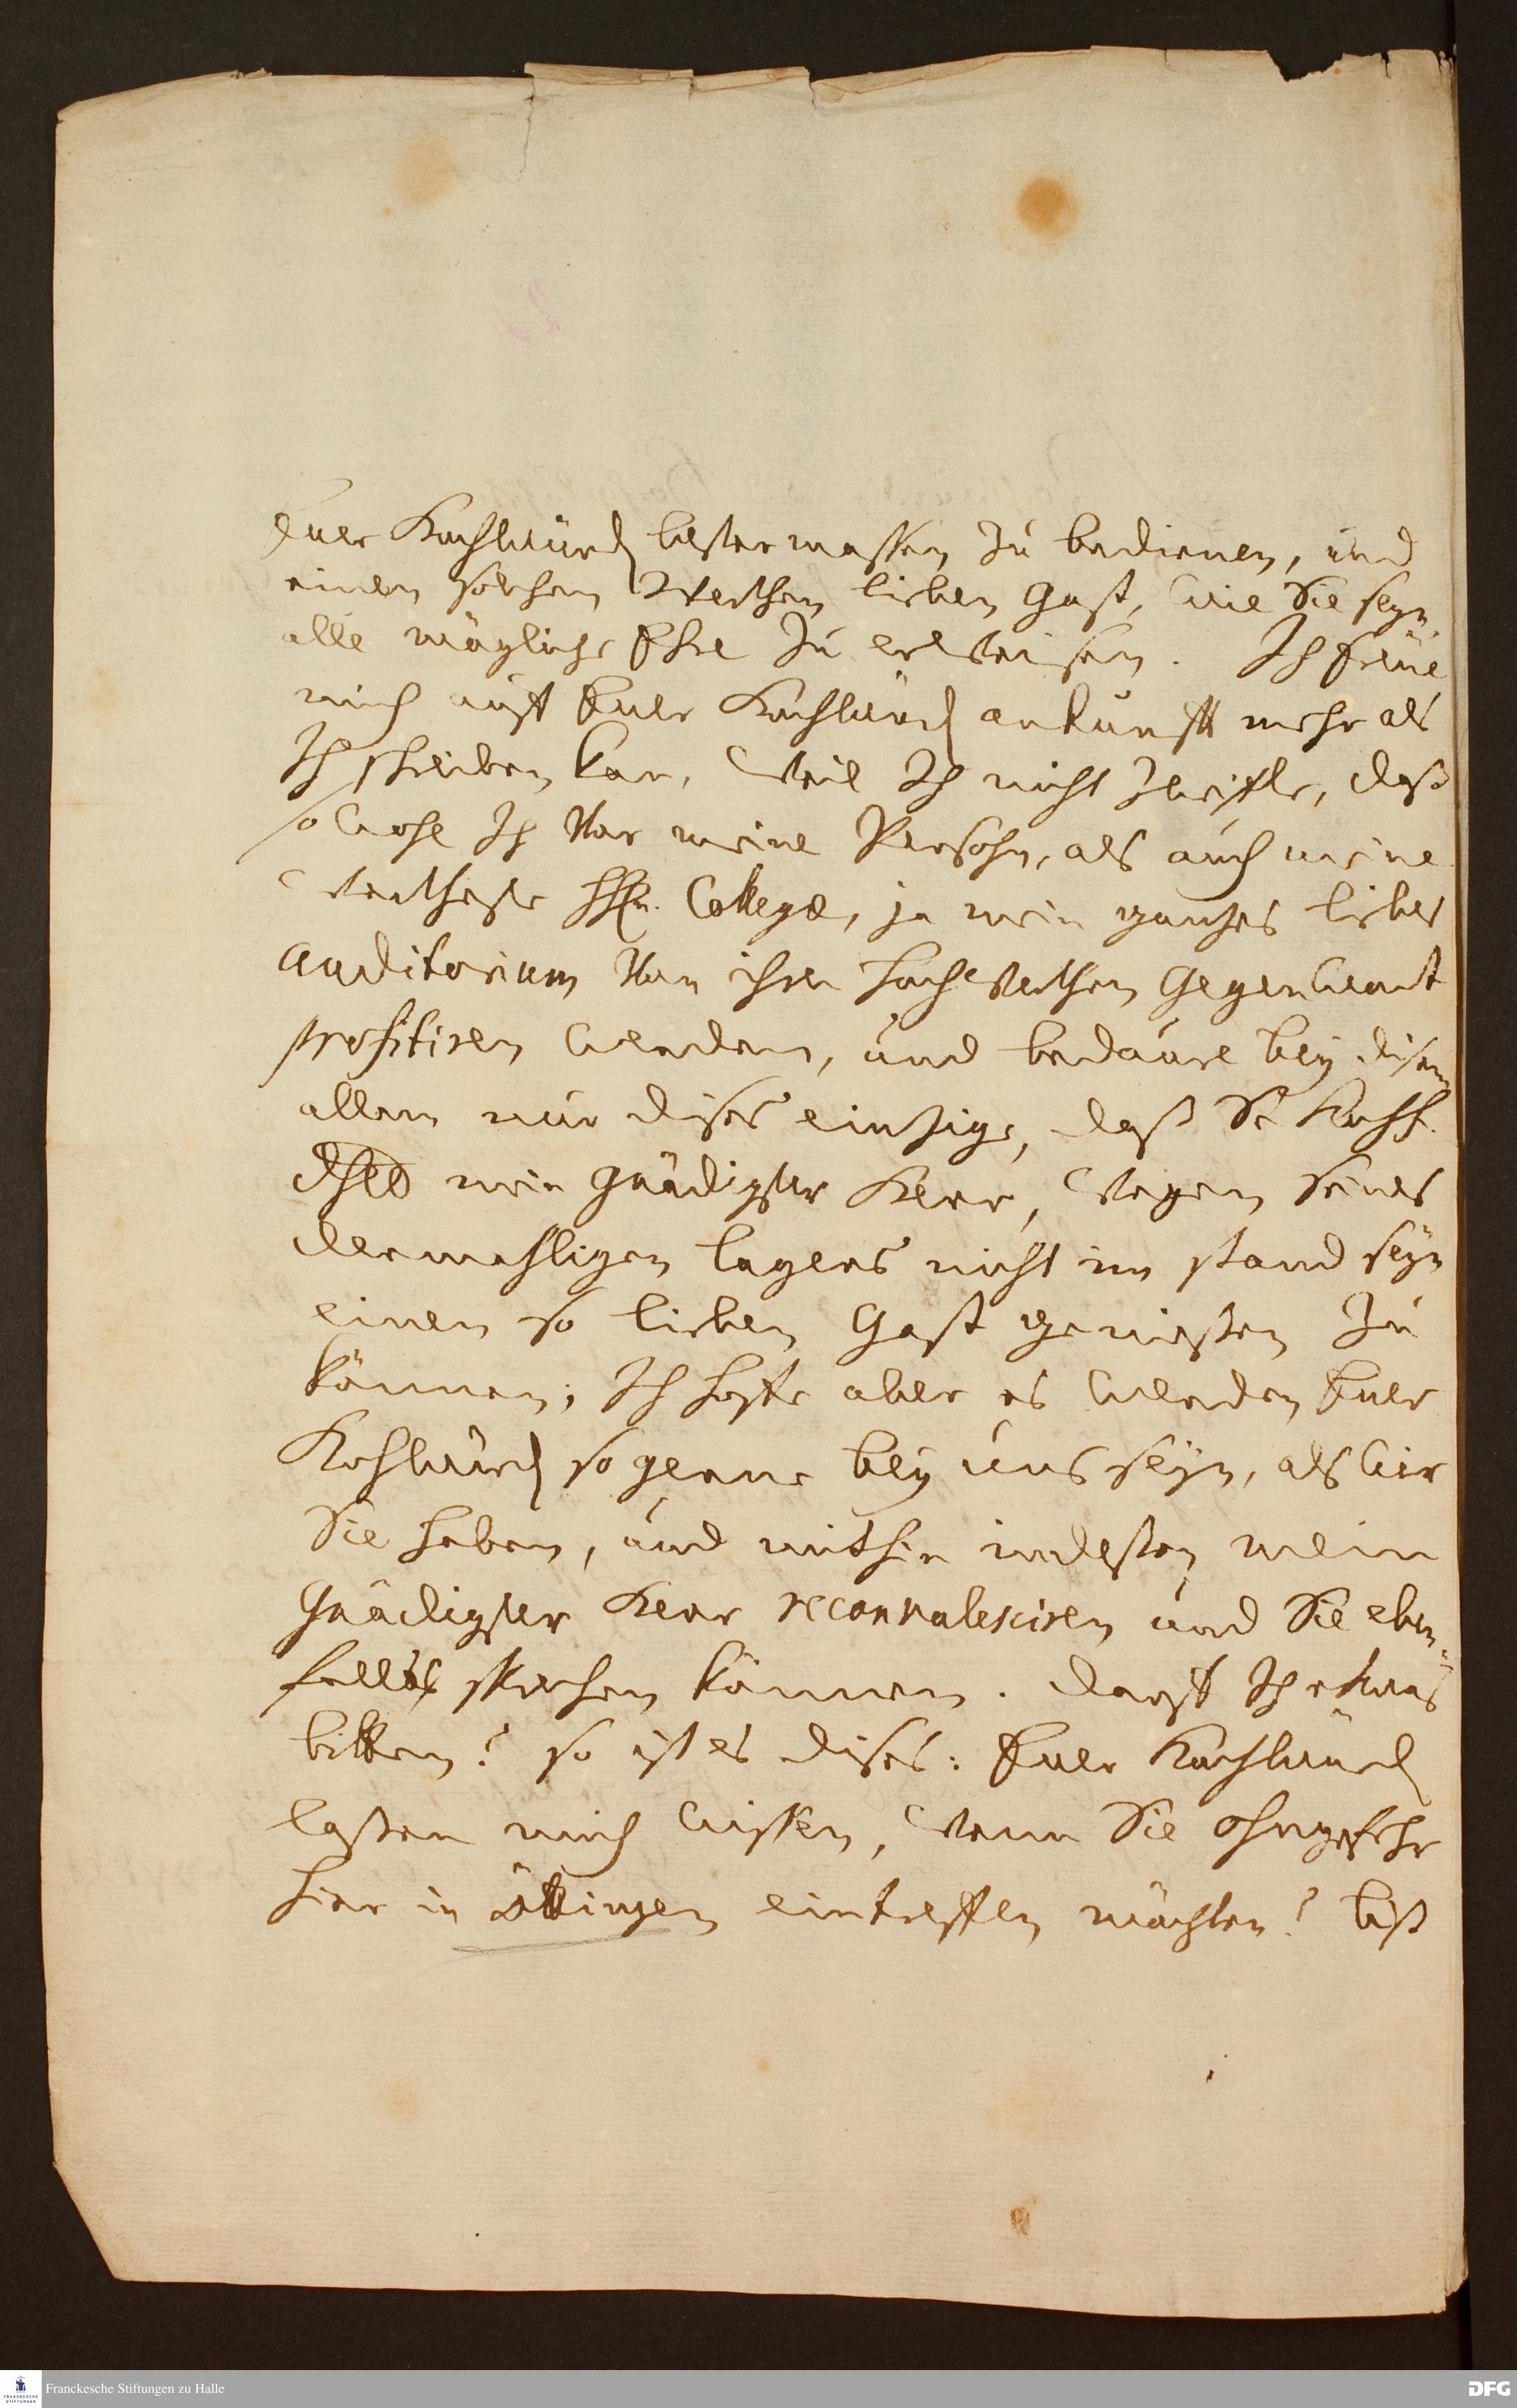 Euer Hochwürd bestermassen zu bedienen, und
einem solchem Werthen lieben Gast, wie Sie seyn
alle mögliche Ehre zu erweisen. Ich freüe
mich auff Euer Hochwürd ankunfft mehr als
Ich schreiben kan, weil Ich nicht zweiffle, daß
so wohl Ich vor meine Persohn, als auch meine
wertheste HHn. Collegæ, ja mein ganzes liebes
Auditorium von ihrer hochwerthen Gegenwart
profitiren werden, und bedaure bey disem
allem nur dises einzige, daß Se Hochf.
Dhlt mein Gnädigster Herr, wegen Seines
dermahligen lagers nicht im stand seyn
einen so lieben Gast geniessen zu
können; Ich hoffe aber es werden Euer
Hochwürd so gerne bey uns seyn, als wir
Sie haben, und mithin indessen mein
Gnädigster Herr reconvalesciren und Sie eben-
falls sprechen können. Darff Ich etwas
bitten? so ist es dises: Euer Hochwürd
lassen mich wissen, wenn Sie ohngefehr
hier in Öttingen eintreffen möchten? biß
Franckesche Stiftungen zu Halle
DFG